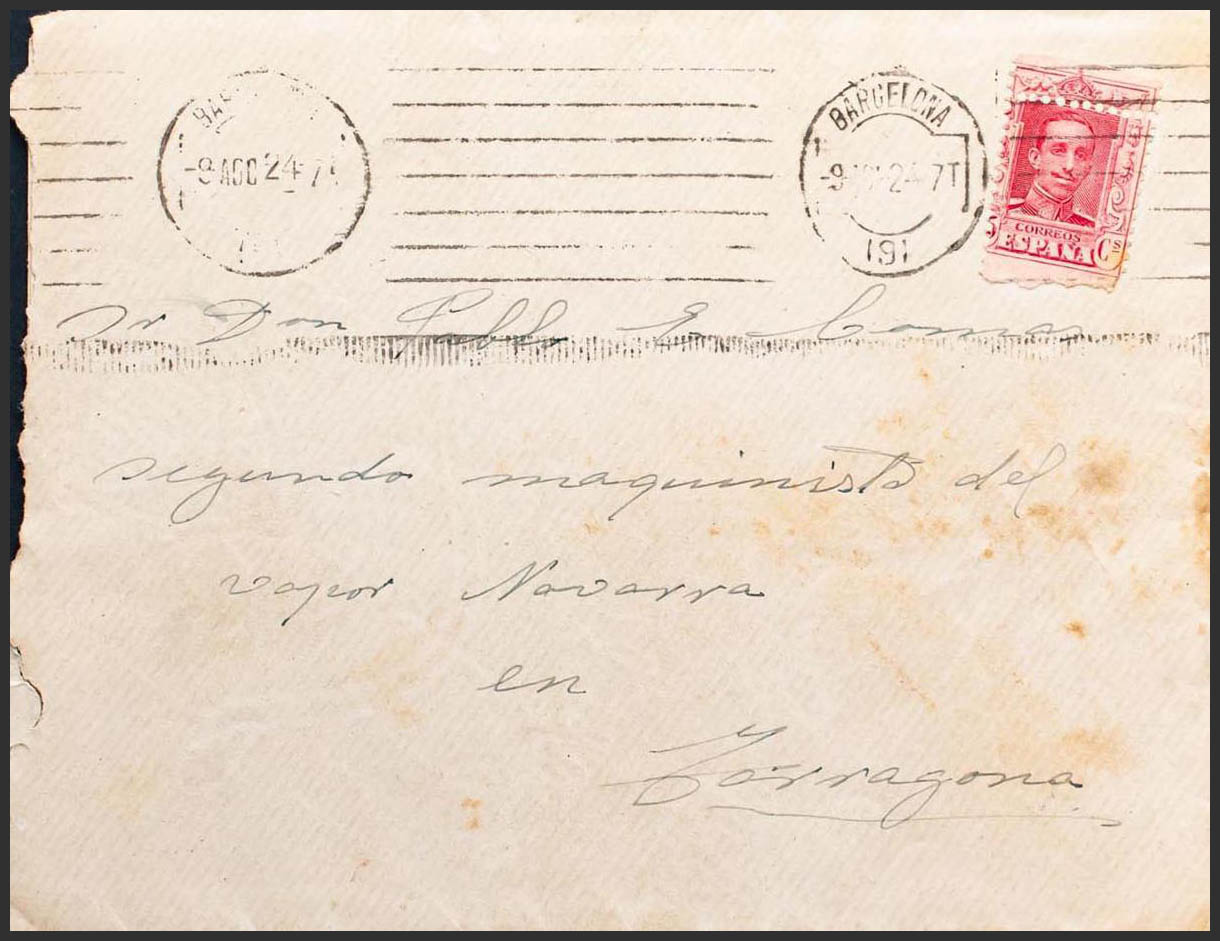 BARCELONA
-9 AGO 24 - 7T
191
BARCELONA
-9 AGO 24 7T
191
CORREOS
ESPAÑA Cs
Sr Don Pablo E Comas
segundo maquinista del
vapor Navarra
en
Tarragona